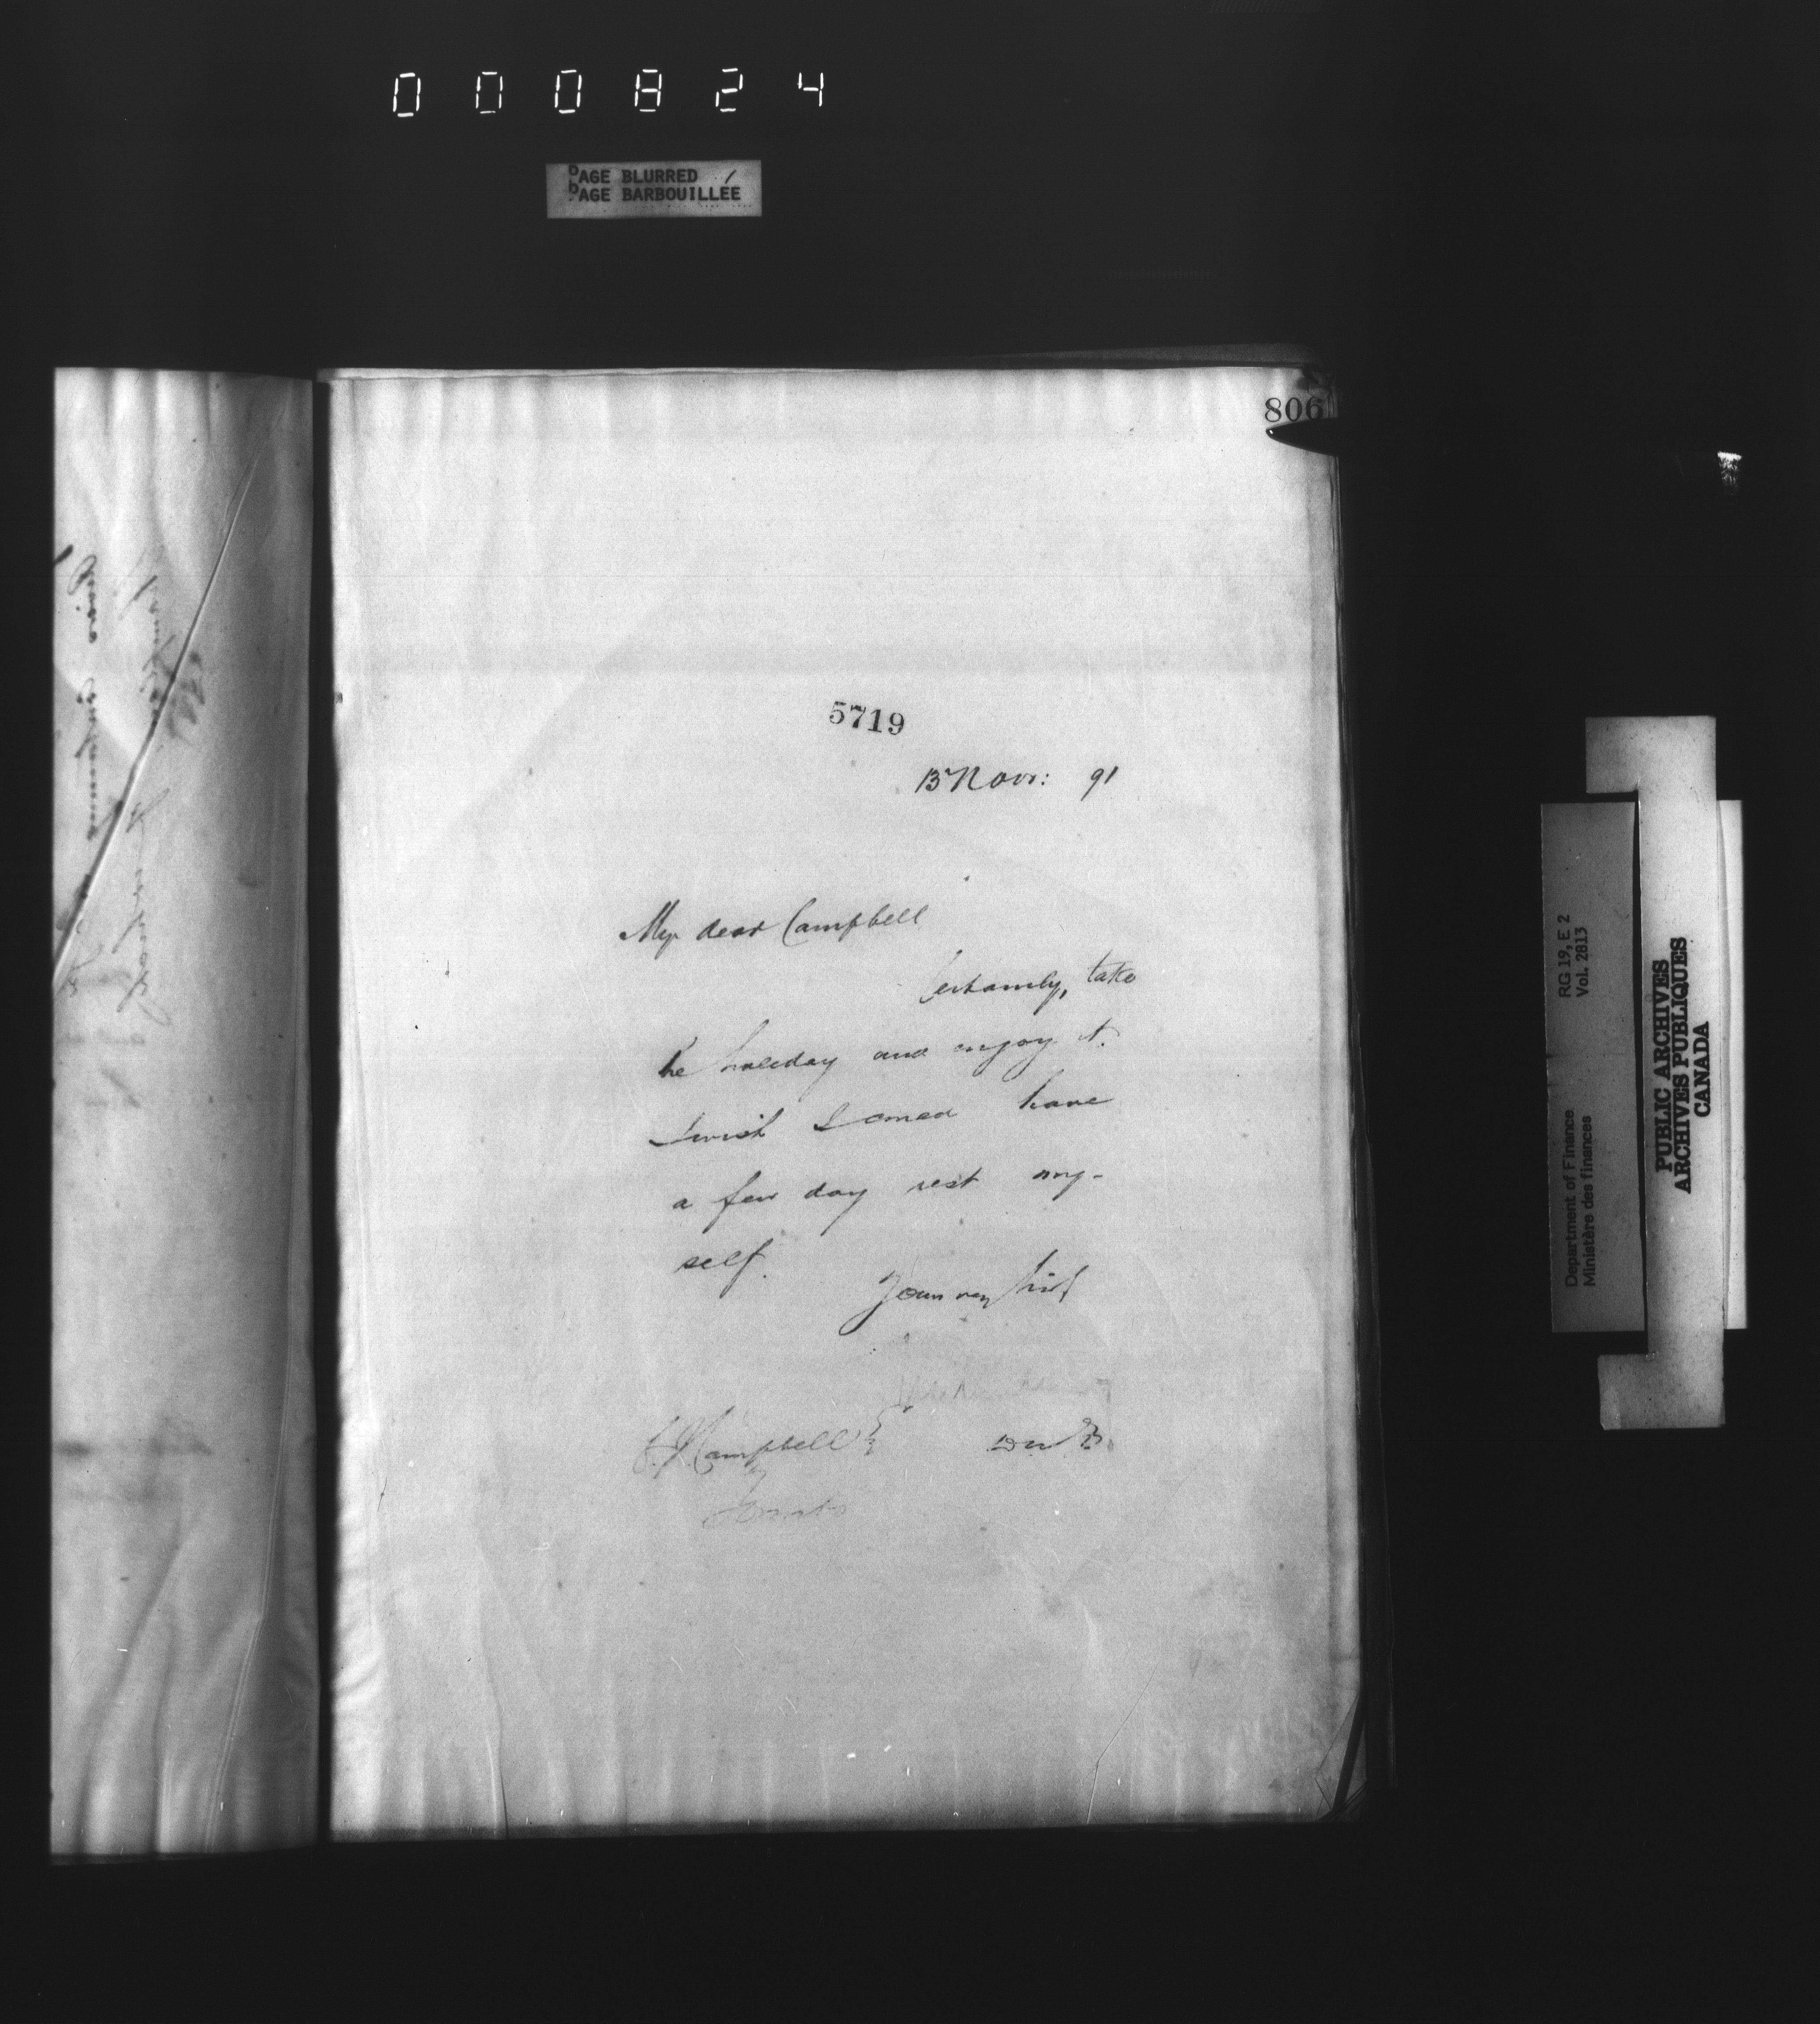 000824
PAGE BLURRED
PAGE BARBOUILLÉE
806
5719
13 Novr: 91
My dear Campbell
Certainly, take
the holiday and enjoy it.
I wish I could have
a few day rest my-
self.
Yours very
Campbell
RG 19, E 2
Vol. 2813
Department of Finance
Ministère des finances
PUBLIC ARCHIVES
ARCHIVES PUBLIQUES
CANADA